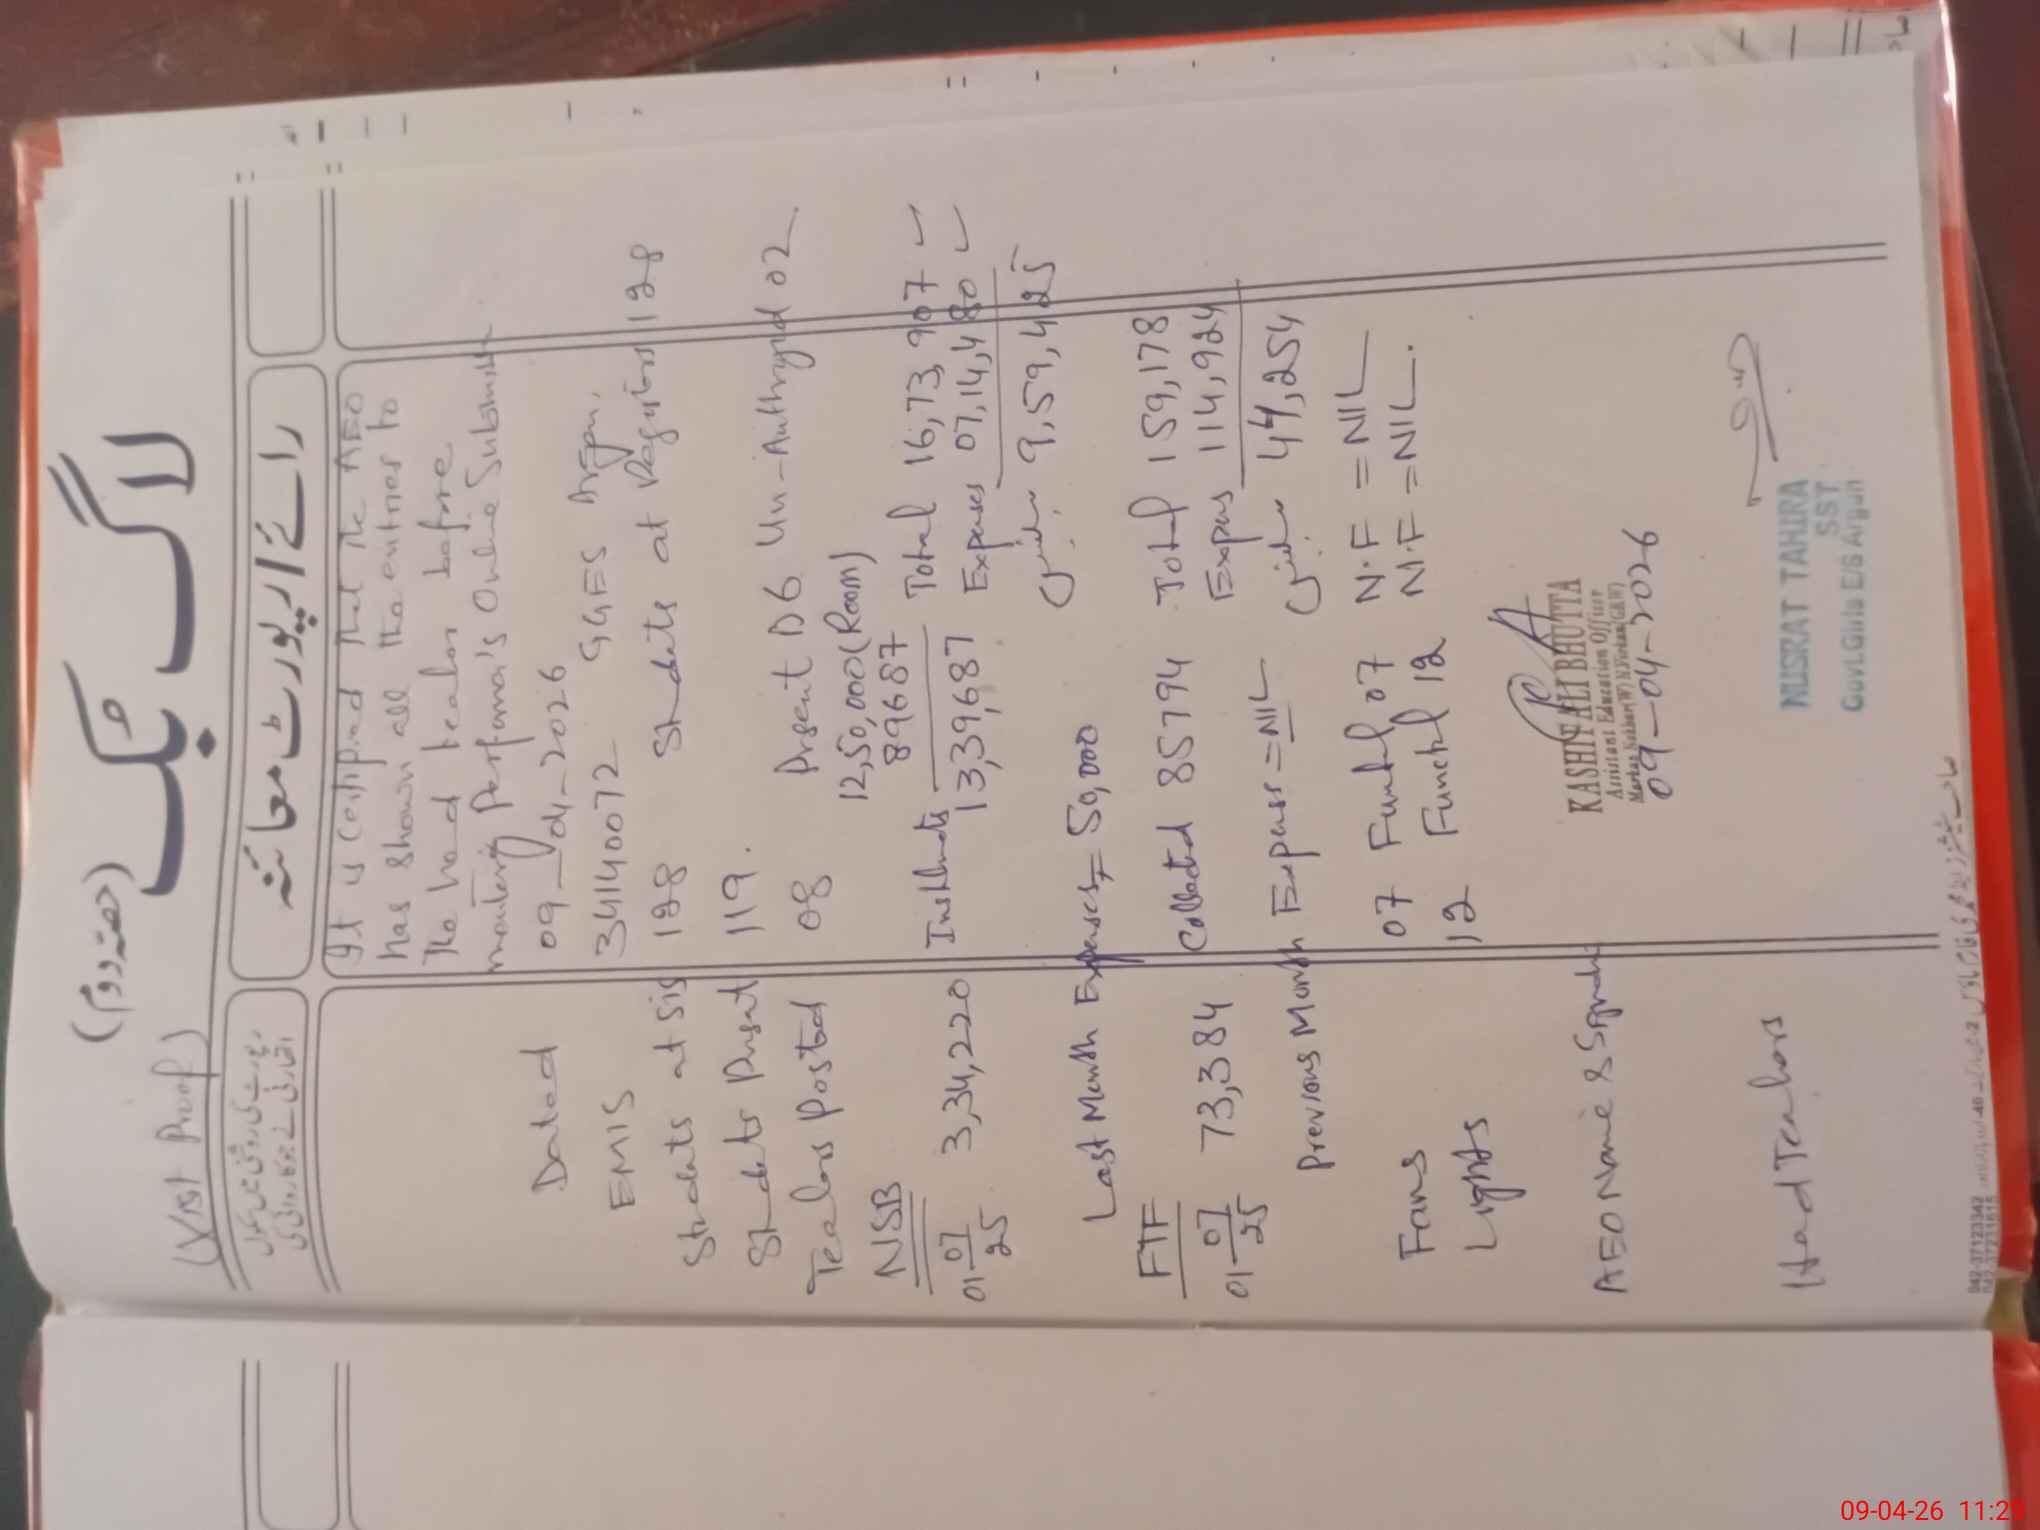 (حصہ دوم)
لاگ بک
(Visit Proof)
رائے / رپورٹ معائنہ
It is certified that the AEO
has shown all the entries to
The head teacher before
monitoring Performa's Online Submission
Dated 09-04-2026
EMIS 34140072 GGES Argun.
Students at SIS 128 Students at Register 128
Students Present 119.
Teachers Posted 08 Present 06 Un-Authorized 02
12,50,000 (Room)
NSB 89687 Total 16,73,907
01-07-25 3,34,220 Installments 13,39,687 Expenses 07,14,480
9,59,425
Last Month Expenses = 50,000
FTF Total 159,178
01-07-25 73,384 Collected 85794 Expens 114,924
44,254
Previous Month Expenses = NIL
Fans 07 Functl 07 N.F = NIL
Lights 12 Functl 12 N.F = NIL.
AEO Name & Signature
KASHIF ALI BHUTTA
Assistant Education Officer
09-04-2026
Head Teachers
NUSRAT TAHIRA
SST
Govt.Girls E/S Argun
042-37123342
09-04-26 11:23